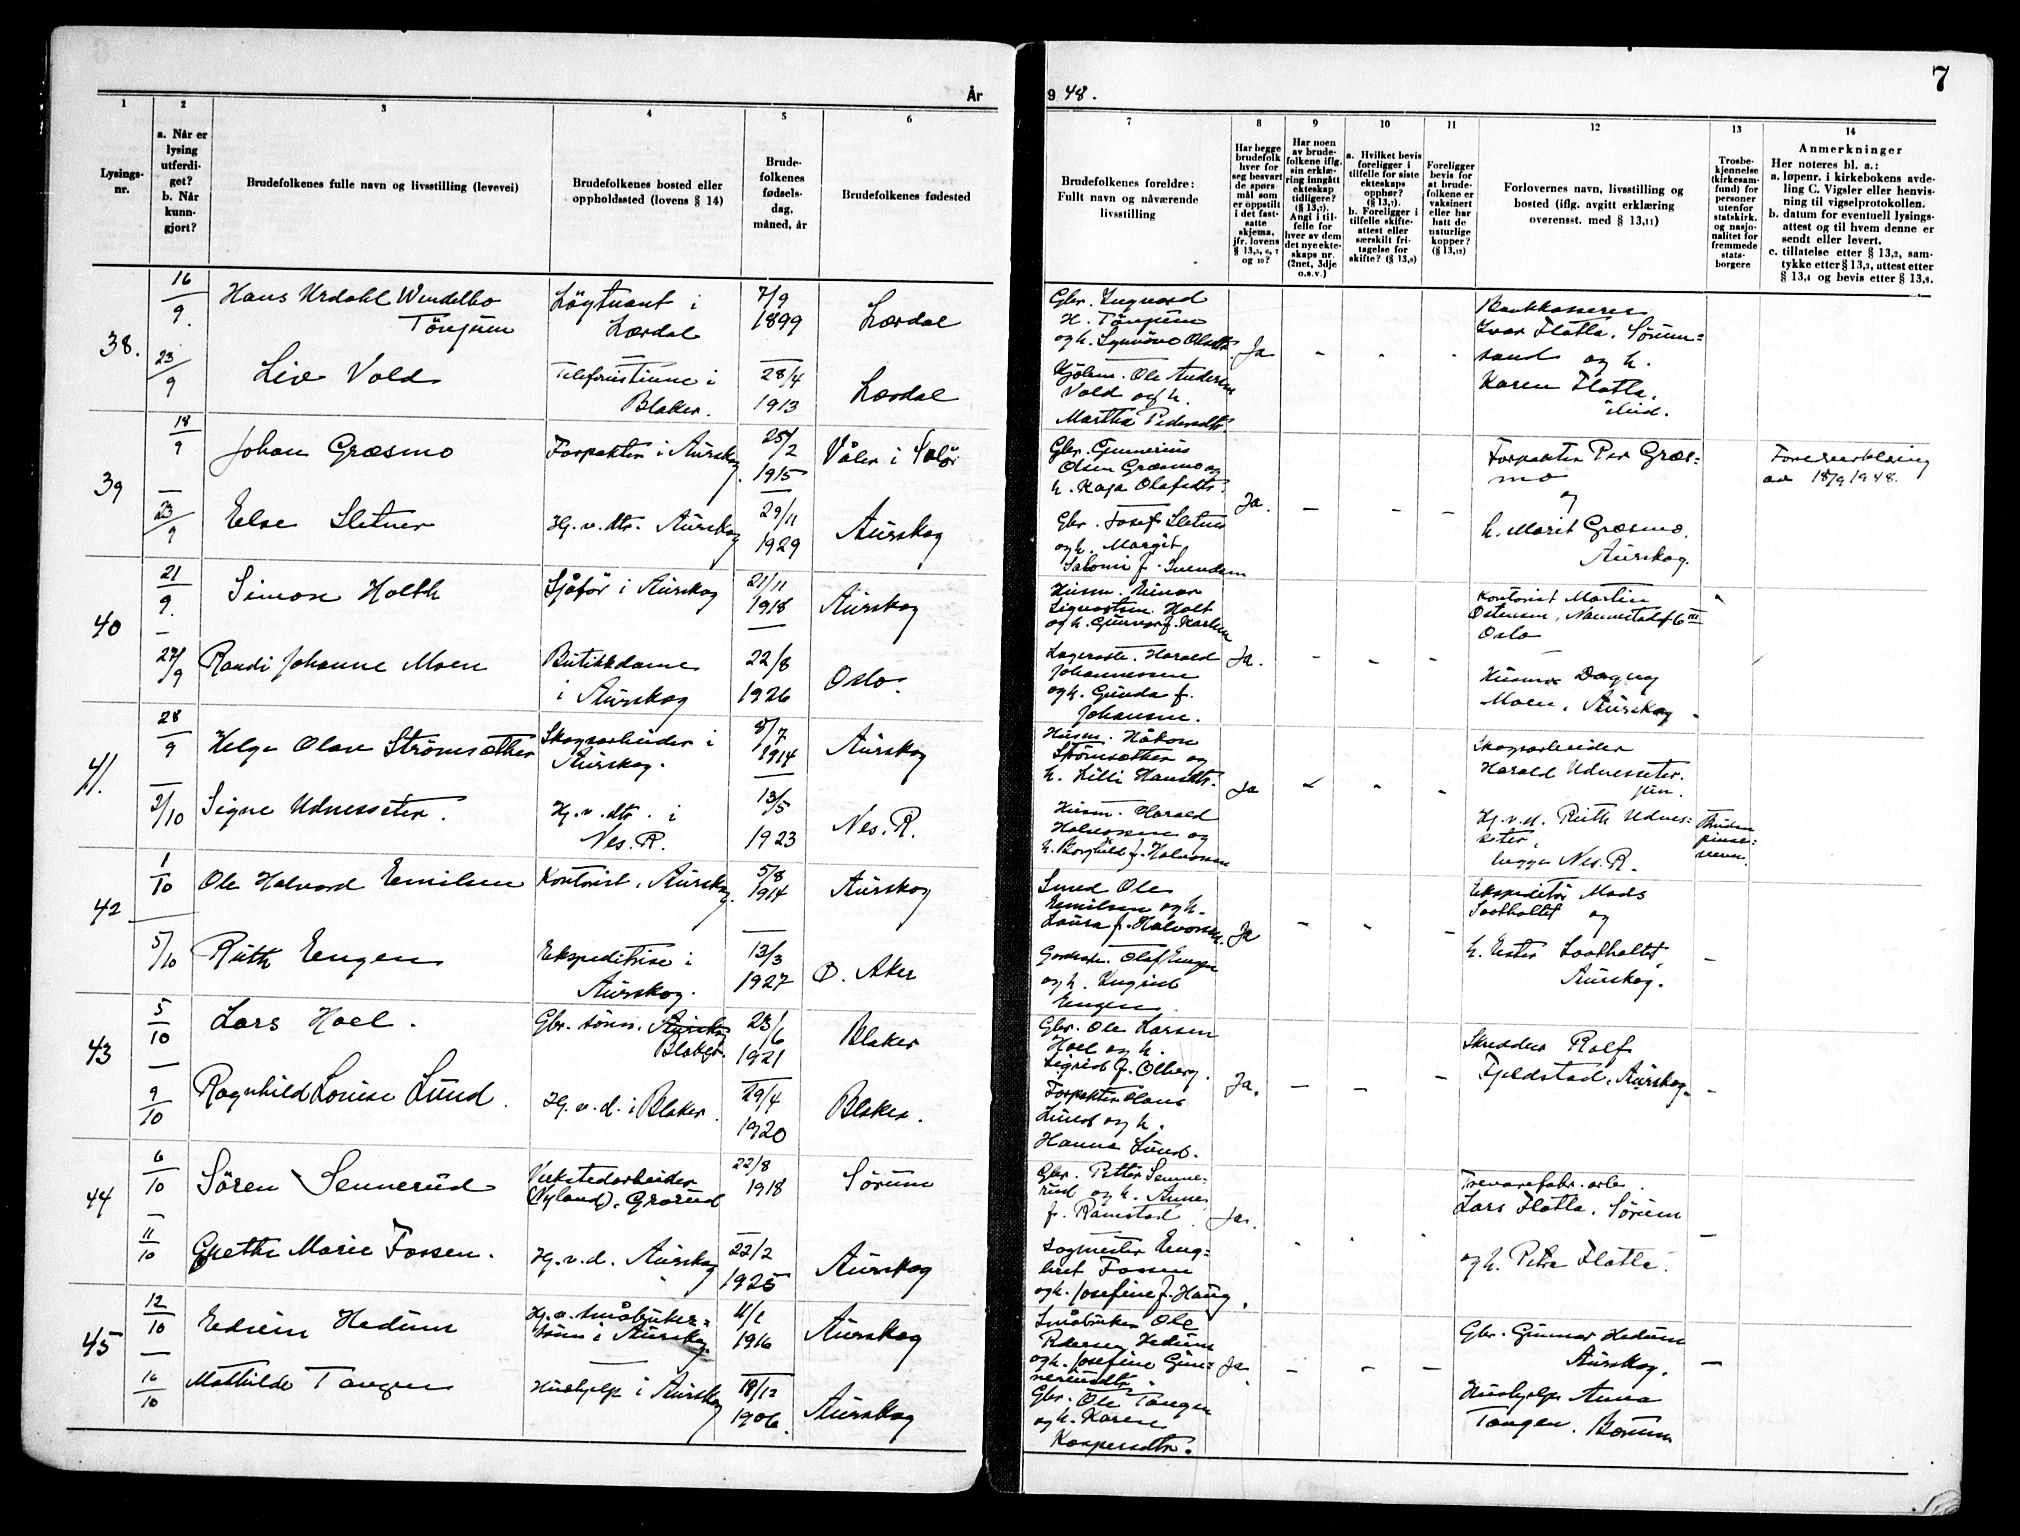 7
År 1948.
1
2
3
4
5
6
7
8
9
10
11
12
13
14
Lysings-
nr.
a. Når er
lysing
utferdi-
get?
b. Når
kunn-
gjort?
Brudefolkenes fulle navn og livsstilling (levevei)
Brudefolkenes bosted eller
oppholdssted (lovens § 14)
Brude-
folkenes
fødsels-
dag,
måned, år
Brudefolkenes fødested
Brudefolkenes foreldre:
Fullt navn og nåværende
livsstilling
Har begge
brudefolk
hver for
seg besvart
de spørs-
mål som
er oppstilt
i det fast-
satte
skjema,
jfr. lovens
§ 13,5, 6, 7
og 10?
Har noen
av brude-
folkene iflg.
sin erklæ-
ring inngått
ekteskap
tidligere?
(§ 13,7).
Angi i til-
felle for
hver av dem
det nye ekte-
skaps nr.
(2net, 3dje
o.s.v.)
a. Hvilket bevis
foreligger i
tilfelle for siste
ekteskaps
opphør?
(§ 13,7).
b. Foreligger i
tilfelle skifte-
attest eller
særskilt fri-
tagelse for
skifte? (§ 13,9)
Foreligger
bevis for
at brude-
folkene er
vaksinert
eller har
hatt de
naturlige
kopper?
(§ 13,12)
Forlovernes navn, livsstilling og
bosted (iflg. avgitt erklæring
overensst. med § 13,11)
Trosbe-
kjennelse
(kirkesam-
fund) for
personer
utenfor
statskirk.
og nasjo-
nalitet for
fremmede
stats-
borgere
Anmerkninger
Her noteres bl. a.:
a. løpenr. i kirkebokens avde-
ling C. Vigsler eller henvis-
ning til vigselprotokollen.
b. datum for eventuell lysings-
attest og til hvem denne er
sendt eller levert.
c. tillatelse etter § 13,2, sam-
tykke etter § 13,3, attest etter
§ 13,4 og bevis etter § 13,8.
38.
16/9.
23/9
Hans Urdahl Wendelbo
Tönjum
Løytnant i
Lærdal
7/9
1899
Lærdal
Gbr. Ingvard
H. Tönjum
og h. Synnöve Olsdtr.
Ja
Bankkasserer
Ivar Flatla, Sørum-
sand og h.
Karen Flatla,
Liv Vold
Telefonistinne i
Blaker.
28/4
1913
Lærdal
Ole Andersen
Vold og h.
Martha Pedersdtr.
39
18/9
23/9
Johan Græsmo
Forpakter i Aurskog.
25/2
1915
Våler i Solør
Gbr. Gunnerius
Olsen Græsmo og
h. Kaja Olafsdtr.
Ja.
Forpakter Per Græs-
mo
og
h. Marit Græsmo,
Aurskog.
av 18/9 1948.
Else Sletner
Hj. v. dtr. Aurskog
29/11
1929
Aurskog
Gbr. Josef Sletner
og h. Margit
Salomi f. Svendsen
40
21/9.
27/9
Simon Holth
Sjåfør i Aurskog
21/11
1918
Aurskog
Husm. Einar
Sigvartsen Holt
og h. Gunvor f. Karlsen
Ja.
Kontorist Martin
Ostensen, Nannestadgt 6 III
Oslo
Randi Johanne Moen
Butikkdame
i Aurskog
22/8
1926
Oslo.
Lagerarb. Harald
Johannessen
og h. Gunda f.
Johansen.
Husmor Dagny
Moen, Aurskog.
41.
28/9
3/10
Helge Olav Strømsæther
Skogsarbeider i
Aurskog.
8/7
1914
Aurskog
Husm. Håkon
Strømsæther og
h. Lilli Hansdtr.
Ja
Skogsarbeider
Harald Udnesseter.
jun.
Signe Udnesseter.
Hj. v. dtr. i
Nes. R.
13/5
1923
Nes. R.
Husm. Harald
Halvorsen og
h. Borghild f. Halvorsen
Hj. v. d. Ruth Udnes-
seter,
begge Nes. R.
Bruden
pinse-
venn.
42
1/10
5/10
Ole Halvard Emilsen
Kontorist, Aurskog.
5/8
1914
Aurskog
Smed Ole
Emilsen og h.
Laura f. Halvorsen.
Ja
Ekspeditør Mads
Sootholtet og
h. Ester Sootholtet,
Aurskog.
Ruth Engen
Ekspeditrise i
Aurskog.
13/3
1927
Ø. Aker
Olaf Engen
og h. Ingrid
Engen
43
5/10
9/10
Lars Hoel.
Gbr. sønn. Aursko
Blaker.
23/6
1921
Blaker
Gbr. Ole Larsen
Hoel og h.
Sigrid f. Olberg.
Ja.
Skredder Rolf
Fjeldstad, Aurskog.
Ragnhild Louise Lund.
Hj. v. d. i Blaker.
29/4
1920
Blaker.
Forpakter Hans
Lund og h.
Hanna Lund.
44
6/10
11/10
Sören Sennerud
Verkstedarbeider
(Nyland), Grorud
22/8
1918
Sørum
Gbr. Petter Senne-
rud og h. Anne
f. Ramstad.
Ja.
Trevarefabr. arb.
Lars Flatla, Sörum
og h. Petra Flatla.
Grethe Marie Fossen.
Hj. v. d. Aurskog
22/2
1925
Aurskog
Sagmester Eng-
bret Fossen
og h. Josefine f. Haug.
45
12/10
16/10
Edvin Hedum
Hj. v. småbruker-
sønn i Aurskog.
4/1
1916
Aurskog
Småbruker Ole
Pedersen Hedum
og h. Josefine Gun-
neriusdtr.
Ja.
Gbr. Gunnar Hedum
Aurskog.
Mathilde Tangen
Hushjelp i Aurskog
18/12
1906.
Aurskog
Gbr. Ole Tangen
og h. Karen
Kaspersdtr.
Hushjelp Anna
Tangen, Bærum